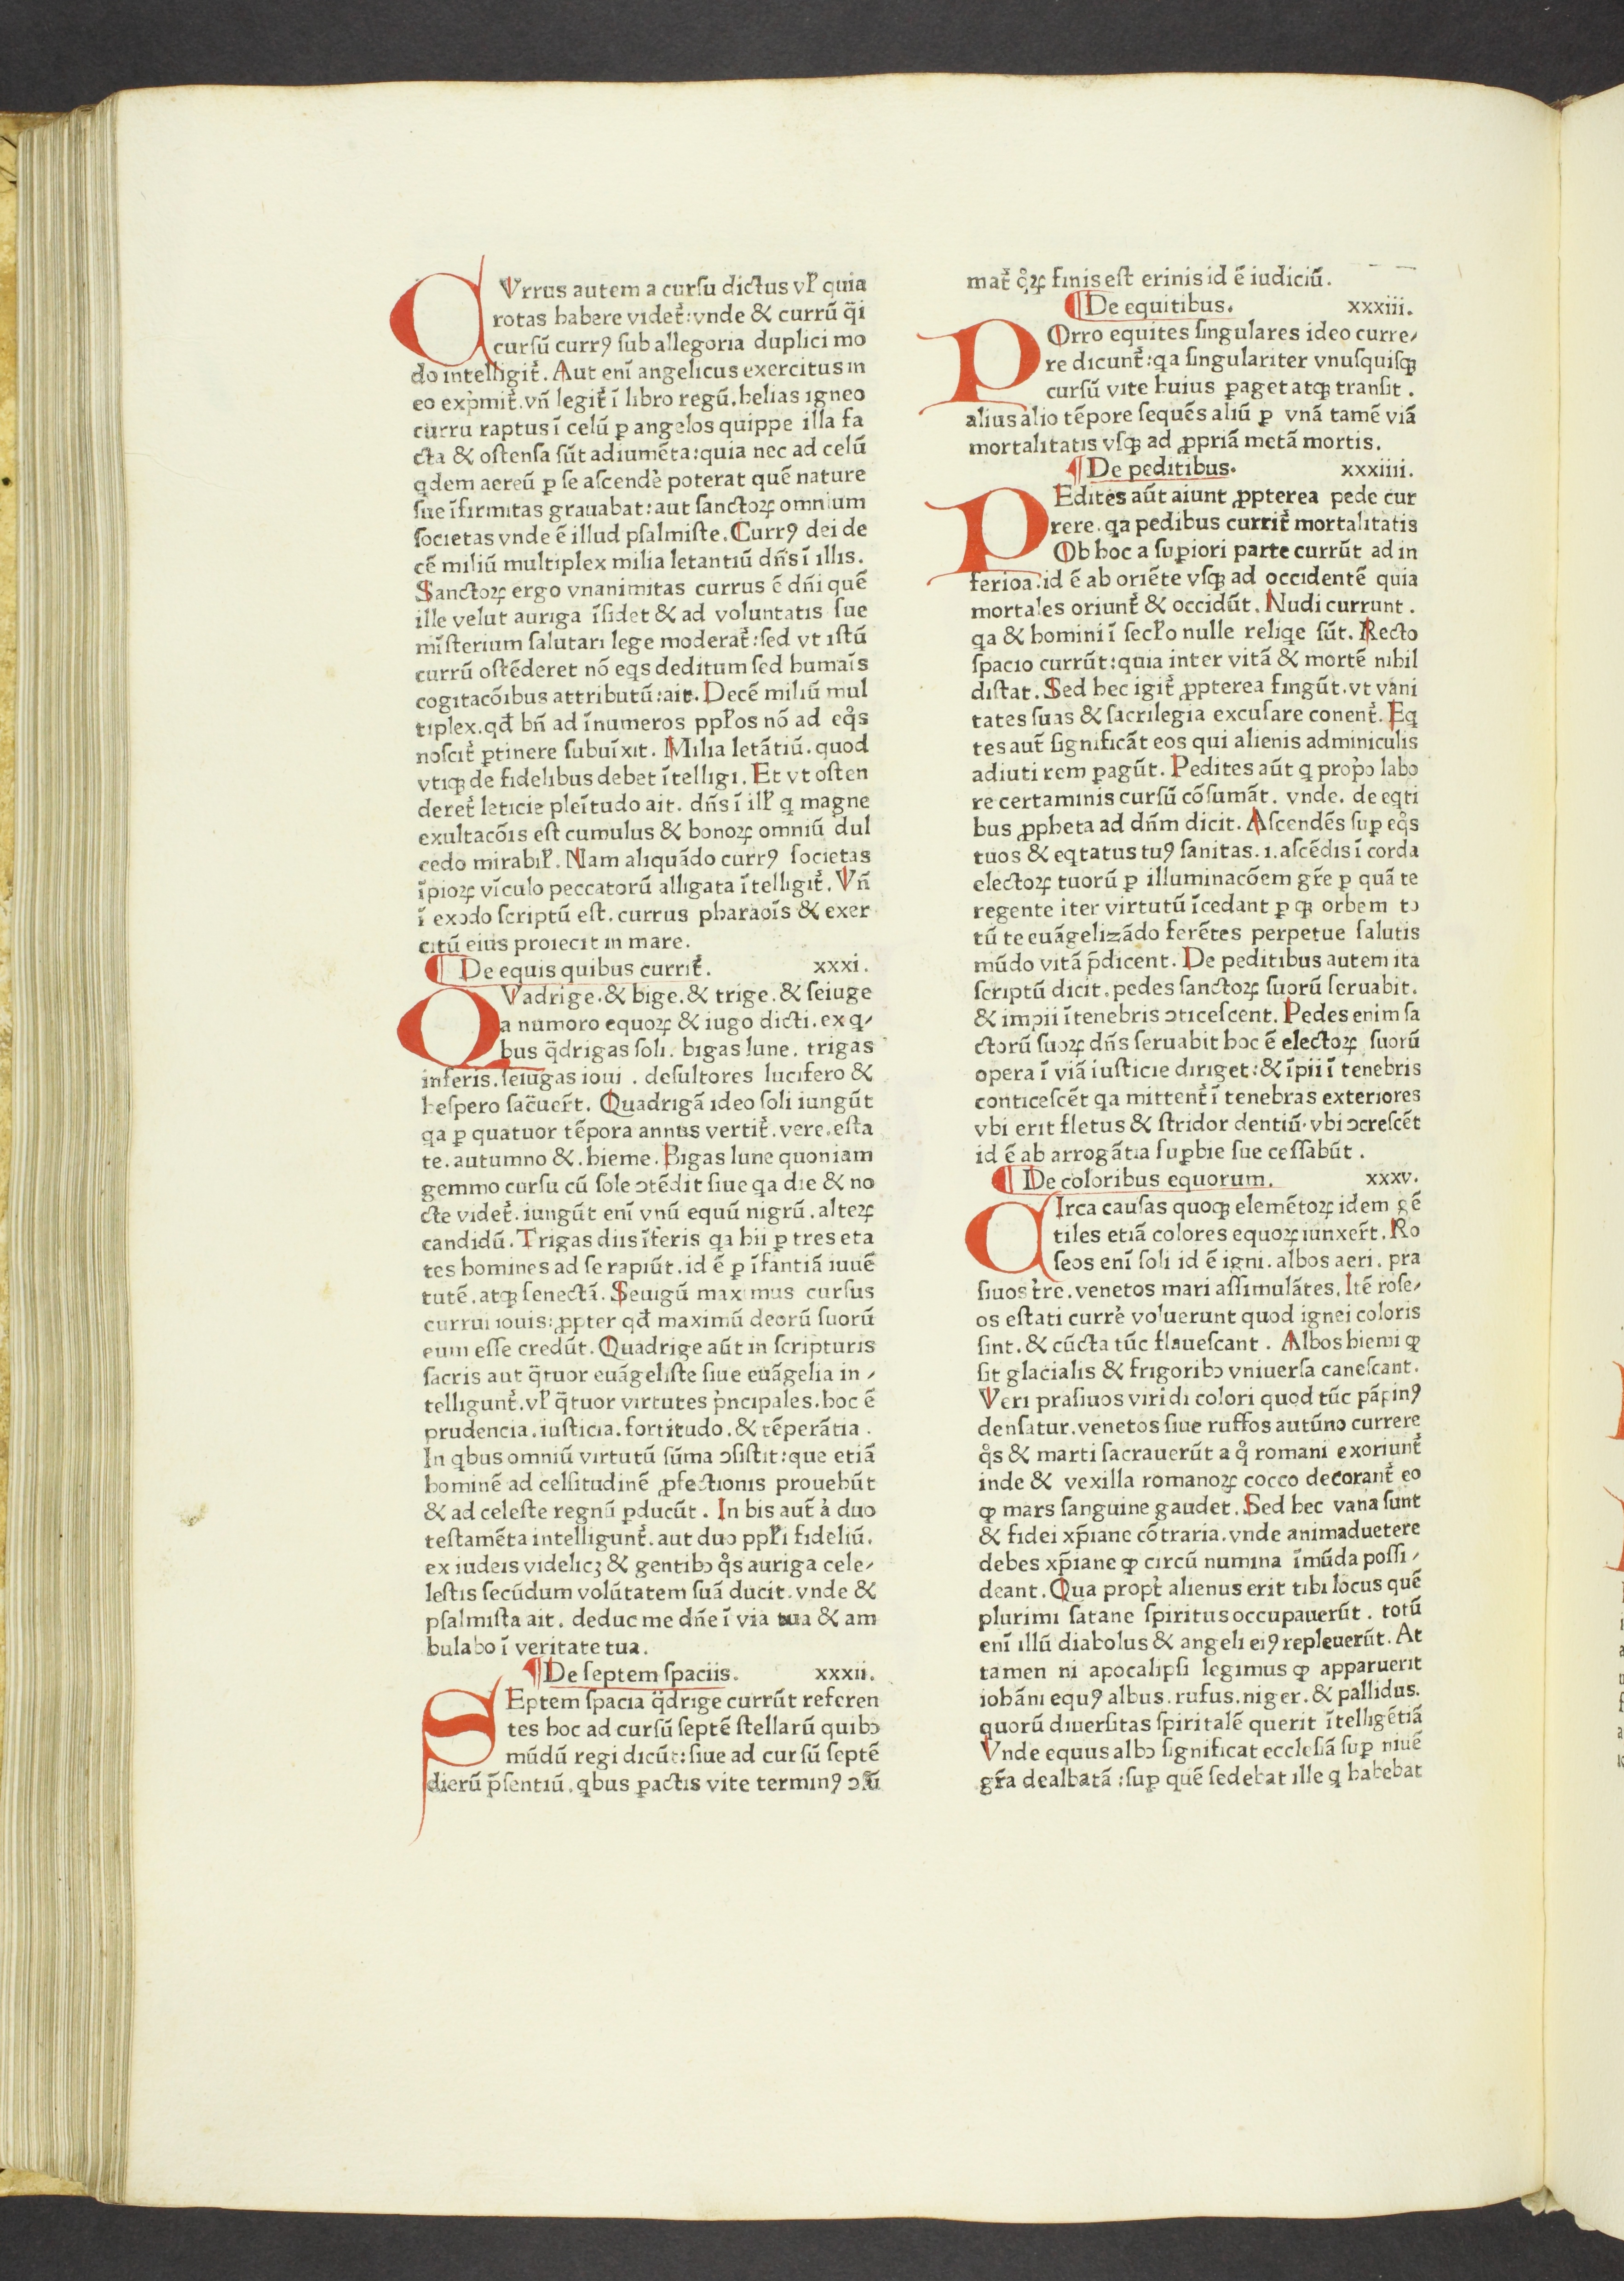 CVrrus autem a curſu dictus vl̉ quia
rotas habere videt᷑:vnde & currū q̈i
curſū currꝰ ſub allegoria duplici mo
do intelligit᷑. Aut enī angelicus exercitus in
eo exp̉mit᷑.vn̄ legit᷑ ī libro regū.helias igneo
curru raptus ī celū ꝑ angelos quippe illa fa
cta & oſtenſa ſūt adiumēta:quia nec ad celū
q̇dem aereū ꝑ ſe aſcendẻ poterat quē nature
ſue īfirmitas grauabat:aut ſanctoꝝ omnium
ſocietas vnde ē illud pſalmiſte.Currꝰ dei de
cē miliū multiplex milia letantiū dn̄s ī illis.
Sanctoꝝ ergo vnanimitas currus ē dn̄i quē
ille velut auriga īſidet & ad voluntatis ſue
mīſterium ſalutari lege moderat᷑:ſed vt iſtū
currū oſtēderet nō eq̇s deditum ſed humaīs
cogitacōibus attributū:ait.Decē miliū mul
tiplex.qđ bn̄ ad īnumeros ppl̉os nō ad eq̊s
noſcit᷑ ꝑtinere ſubuīxit. Milia letātiū.quod
vtiqꝫ de fidelibus debet ītelligi.Et vt oſten
deret᷑ leticie pleītudo ait. dn̄s ī ill̉ q̇ magne
exultacōis eſt cumulus & bonoꝝ omniū dul
cedo mirabil̉. Nam aliquādo currꝰ ſocietas
īpioꝝ vīculo peccatorū alligata ītelligit᷑.Vn̄
ī exodo ſcriptū eſt.currus pharaoīs & exer
citū eius proiecit in mare.
¶ De equis quibus currit᷑. xxxi.
QVadrige.& bige.& trige.& ſeiuge
a numoro equoꝝ & iugo dicti.ex q̇⸗
bus q̈drigas ſoli. bigas lune. trigas
inferis.ſeiugas ioui . deſultores lucifero &
heſpero ſac̄uer̄t. Quadrigā ideo ſoli iungūt
qa ꝑ quatuor tēpora annus vertit᷑.vere.eſta
te.autumno &.hieme.Bigas lune quoniam
gemmo curſu cū ſole ↄtēdit ſiue qa die & no
cte videt᷑.iungūt enī vnū equū nigrū.alteꝝ
candidū.Trigas diis īferis qa hii ꝑ tres eta
tes homines ad ſe rapiūt.id ē ꝑ īfantiā iuuē
tutē.atqꝫ ſenectā. Seuigū maximus curſus
currui iouis:ꝓpter qđ maximū deorū ſuorū
eum eſſe credūt.Quadrige aūt in ſcripturis
ſacris aut q̈tuor euāgeliſte ſiue euāgelia in⸗
telligunt᷑.vl̉ q̈tuor virtutes p̉ncipales.hoc ē
prudencia.iuſticia.fortitudo.& tēperātia .
In q̇bus omniū virtutū ſūma ↄſiſtit:que etiā
hominē ad celſitudinē ꝓfectionis prouehūt
& ad celeſte regnū ꝑducūt. In his aut̄ ả duo
teſtamēta intelligunt᷑.aut duo ppl̉i fideliū.
ex iudeis videlicꝫ & gentibↄ q̊s auriga cele⸗
leſtis ſecūdum volūtatem ſuā ducit.vnde &
pſalmiſta ait. deduc me dn̄e ī via tua & am
bulabo ī veritate tua.
¶De ſeptem ſpaciis. xxxii.
SEptem ſpacia q̈drige currūt referen
tes hoc ad curſū ſeptē ſtellarū quibↄ
mūdū regi dicūt:ſiue ad curſū ſeptē
dierū p̄ſentiū.q̇bus ꝑactis vite terminꝰ ↄſū
mat᷑ q̊ꝝ finis eſt erinis id ē iudiciū.
¶De equitibus. xxxiii.
POrro equites ſingulares ideo curre⸗
re dicunt᷑:qa ſingulariter vnuſquiſqꝫ
curſū vite huius ꝑaget atqꝫ tranſit.
alius alio tēpore ſequēs aliū ꝑ vnā tamē viā
mortalitatis vſqꝫ ad ꝓpriā metā mortis.
¶De peditibus. xxxiiii.
PEdites aūt aiunt ꝓpterea pede cur
rere.qa pedibus currit᷑ mortalitatis
Ob hoc a ſuꝑiori parte currūt ad in
ferioa.id ē ab oriēte vſqꝫ ad occidentē quia
mortales oriunt᷑ & occidūt.Nudi currunt.
qa & homini ī ſecl̉o nulle reliqe ſūt.Recto
ſpacio currūt:quia inter vitā & mortē nihil
diſtat.Sed hec igit᷑ ꝓpterea fingūt.vt vani
tates ſuas & ſacrilegia excuſare conent᷑.Eq
tes aut̄ ſignificāt eos qui alienis adminiculis
adiuti rem ꝑagūt.Pedites aūt q̇ prop̉o labo
re certaminis curſū cōſumāt. vnde. de eq̇ti
bus ꝓpheta ad dn̄m dicit.Aſcendēs ſuꝑ eq̊s
tuos & eq̇tatus tuꝰ ſanitas.i.aſcēdis ī corda
electoꝝ tuorū ꝑ illuminacōem gr̄e ꝑ quā te
regente iter virtutū īcedant ꝑ qꝫ orbem to
tū te euāgelizādo ferētes perpetue ſalutis
mūdo vitā p̄dicent. De peditibus autem ita
ſcriptū dicit.pedes ſanctoꝝ ſuorū ſeruabit.
& impii ītenebris ↄticeſcent.Pedes enim ſa
ctorū ſuoꝝ dn̄s ſeruabit hoc ē electoꝝ ſuorū
opera ī viā iuſticie diriget:& īpii ī tenebris
conticeſcēt qa mittent᷑ ī tenebras exteriores
vbi erit fletus & ſtridor dentiū.vbi ↄcreſcēt
id ē ab arrogātia ſuꝑbie ſue ceſſabūt.
¶ De coloribus equorum. xxxv.
CIrca cauſas quoqꝫ elemētoꝝ idem gē
tiles etiā colores equoꝝ iunxer̄t.Ro
ſeos enī ſoli id ē igni.albos aeri. pra
ſiuos t̉re.venetos mari aſſimulātes.Itē roſe⸗
os eſtati currẻ voluerunt quod ignei coloris
ſint.& cūcta tūc flaueſcant. Albos hiemi qꝫ
ſit glacialis & frigoribↄ vniuerſa caneſcant.
Veri praſiuos viridi colori quod tūc pāpinꝰ
denſatur.venetos ſiue ruffos autūno currere
q̊s & marti ſacrauerūt a q̊ romani exoriunt᷑
inde & vexilla romanoꝝ cocco decorant᷑ eo
qꝫ mars ſanguine gaudet.Sed hec vana ſunt
& fidei xp̄iane cōtraria.vnde animaduetere
debes xp̄iane qꝫ circū numina īmūda poſſi⸗
deant.Qua propt᷑ alienus erit tibi locus quē
plurimi ſatane ſpiritus occupauerūt. totū
enī illū diabolus & angeli eiꝰ repleuerūt.At
tamen ni apocalipſi legimus qꝫ apparuerit
iohāni equꝰ albus.rufus.niger.& pallidus.
quorū diuerſitas ſpiritalē querit ītelligētiā
Vnde equus albↄ ſignificat eccleſiā ſuꝑ niuē
gr̄a dealbatā:ſuꝑ quē ſedebat ille q̇ habebat